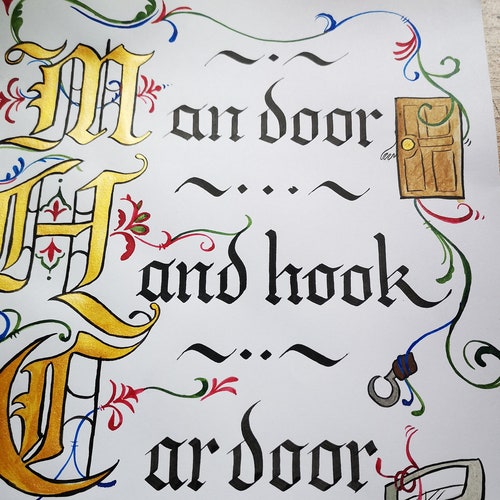 Man door
Hand hook
Car door